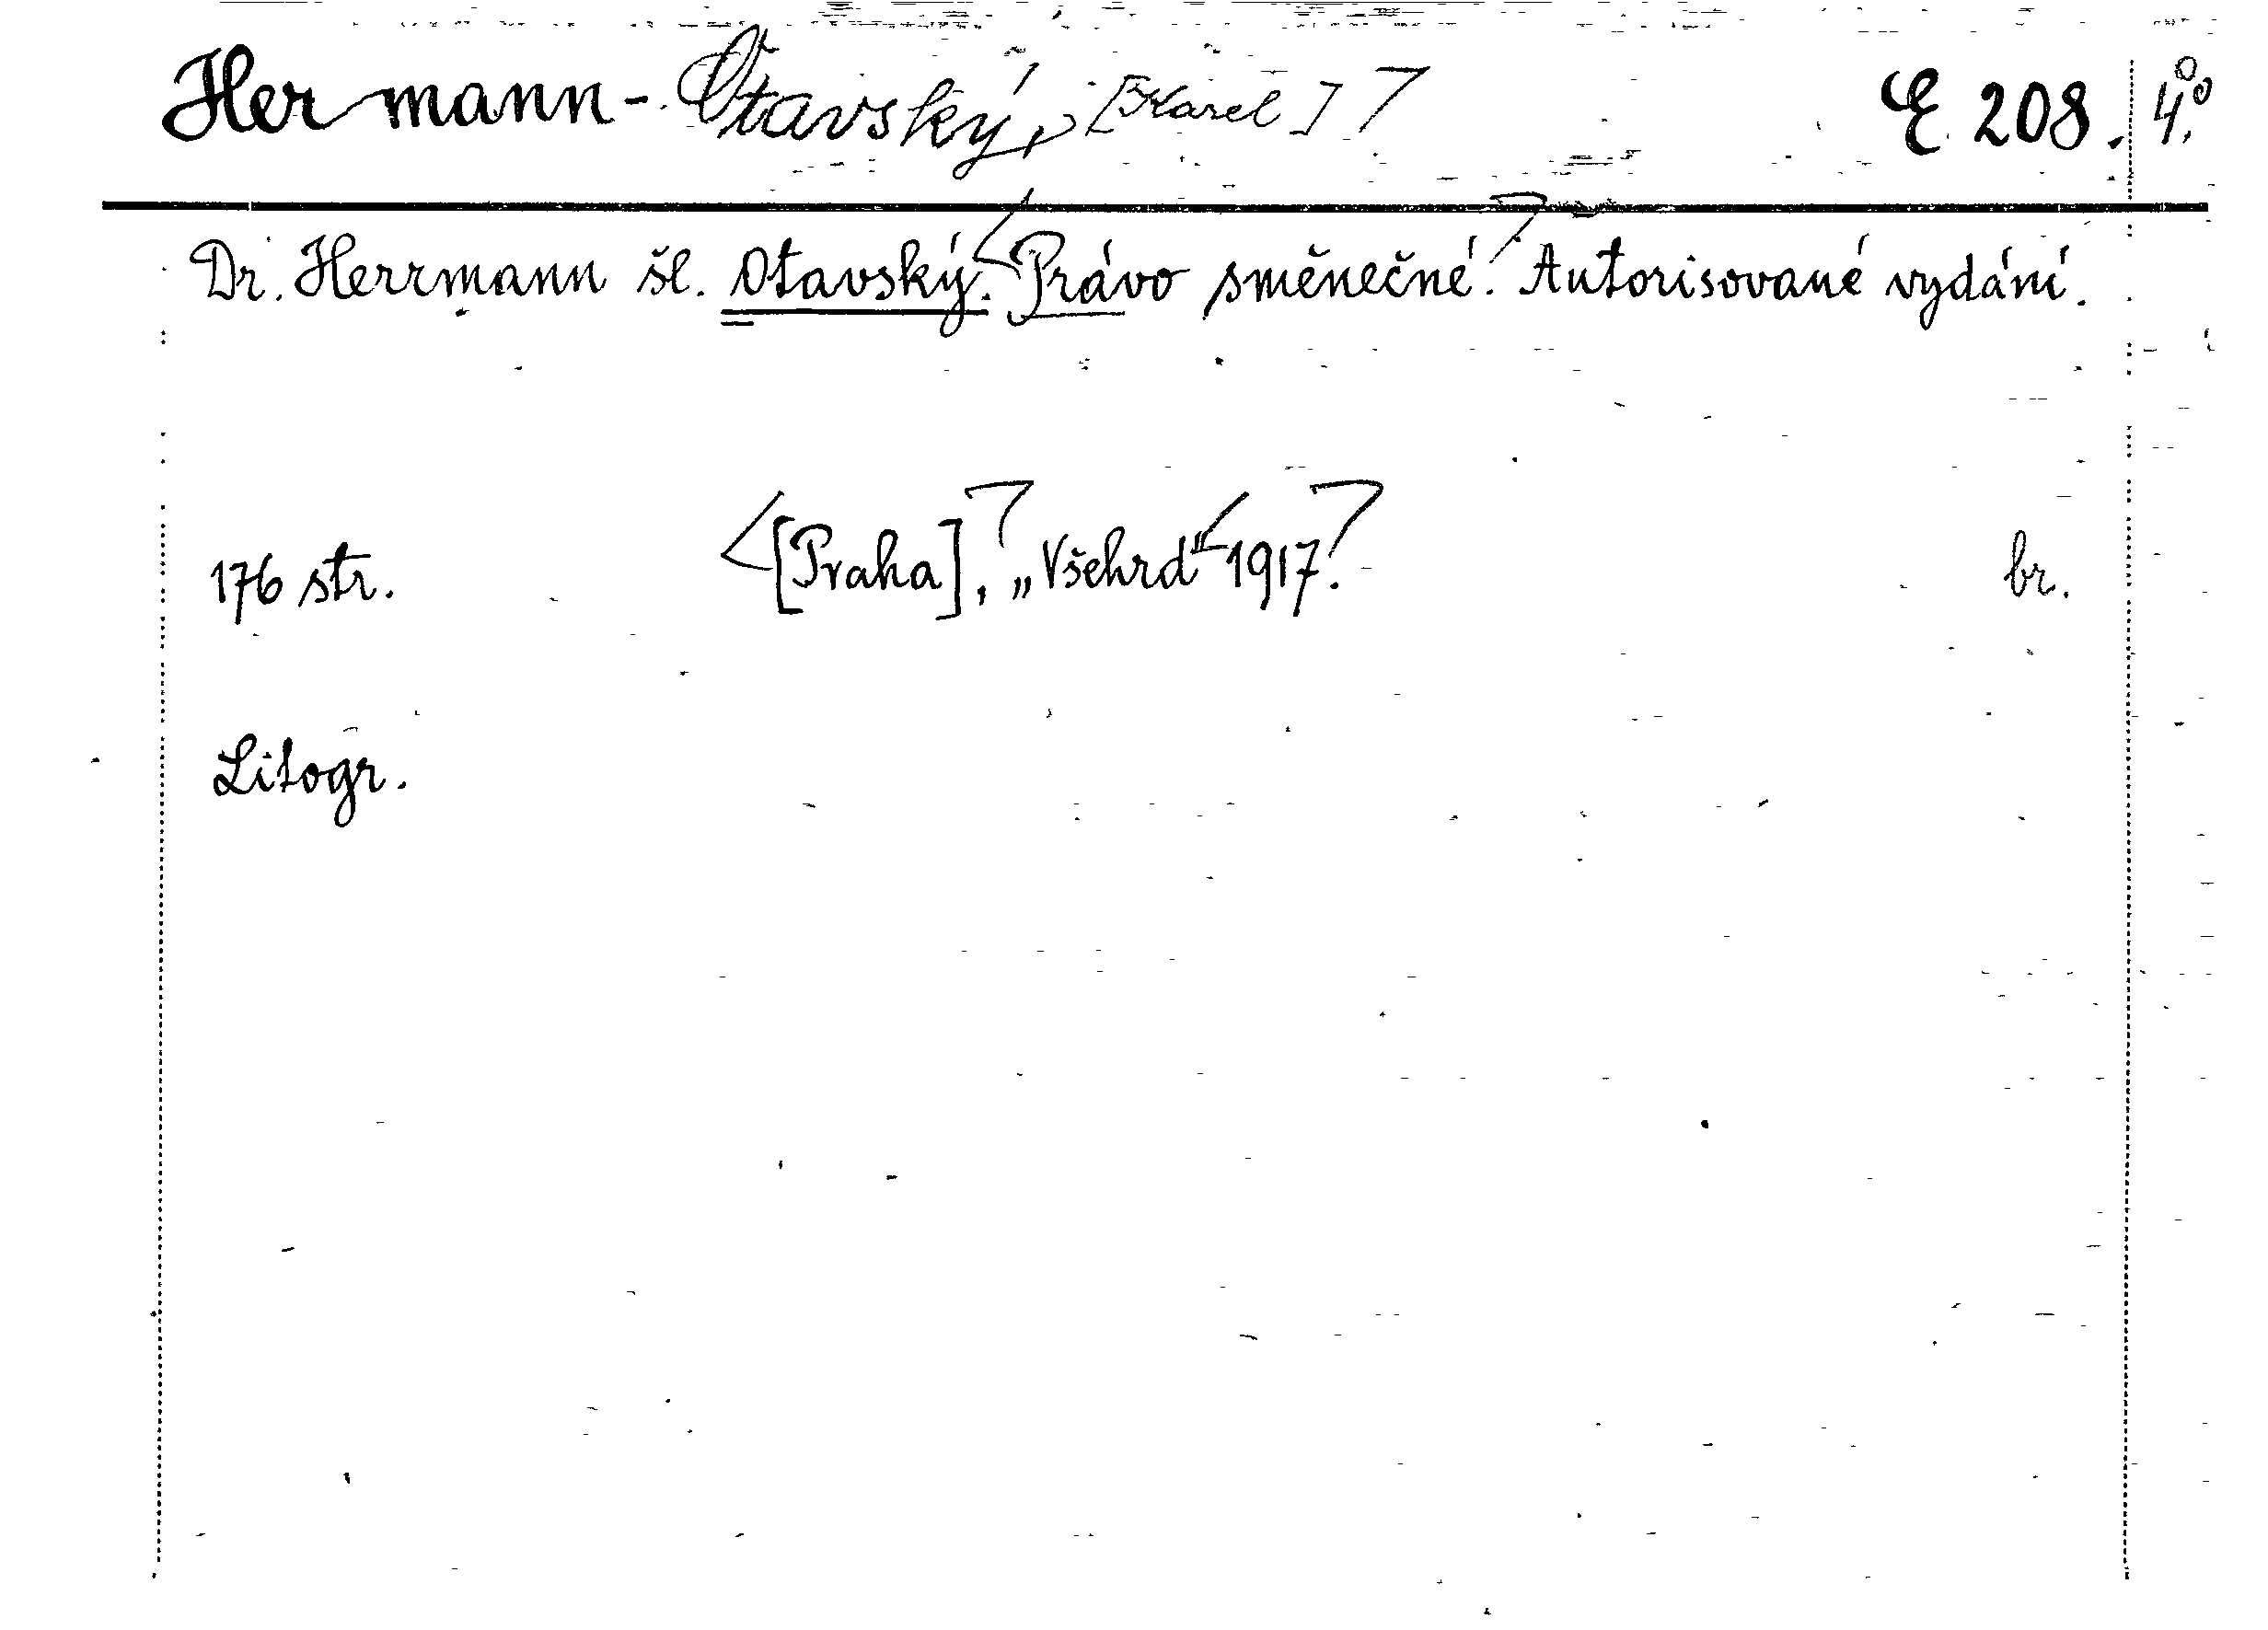 Hermann-Otavský, [Karel] E 208. 4°
Dr. Herrmann šl. Otavský. Právo směnečné. Autorisované vydání.
176 str. [Praha], „Všehrd“ 1917. br.
Litogr.